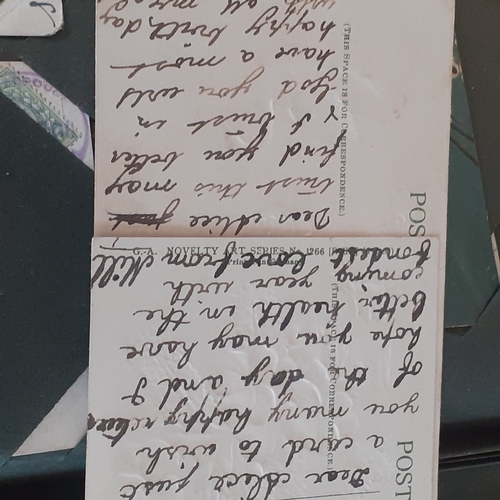 Dear Alice
trust this may
find you better
& I trust in
God you will
have a most
happy birthday
with all my
(THIS SPACE IS FOR CORRESPONDENCE.)
POS
G.-A. NOVELTY ART SERIES No. 1266
Dear Alice just
a card to wish
you many happy returns
of the day and I
hope you may have
better health in the
coming year with
fondest love from Will
(THIS SPACE IS FOR CORRESPONDENCE.)
POST